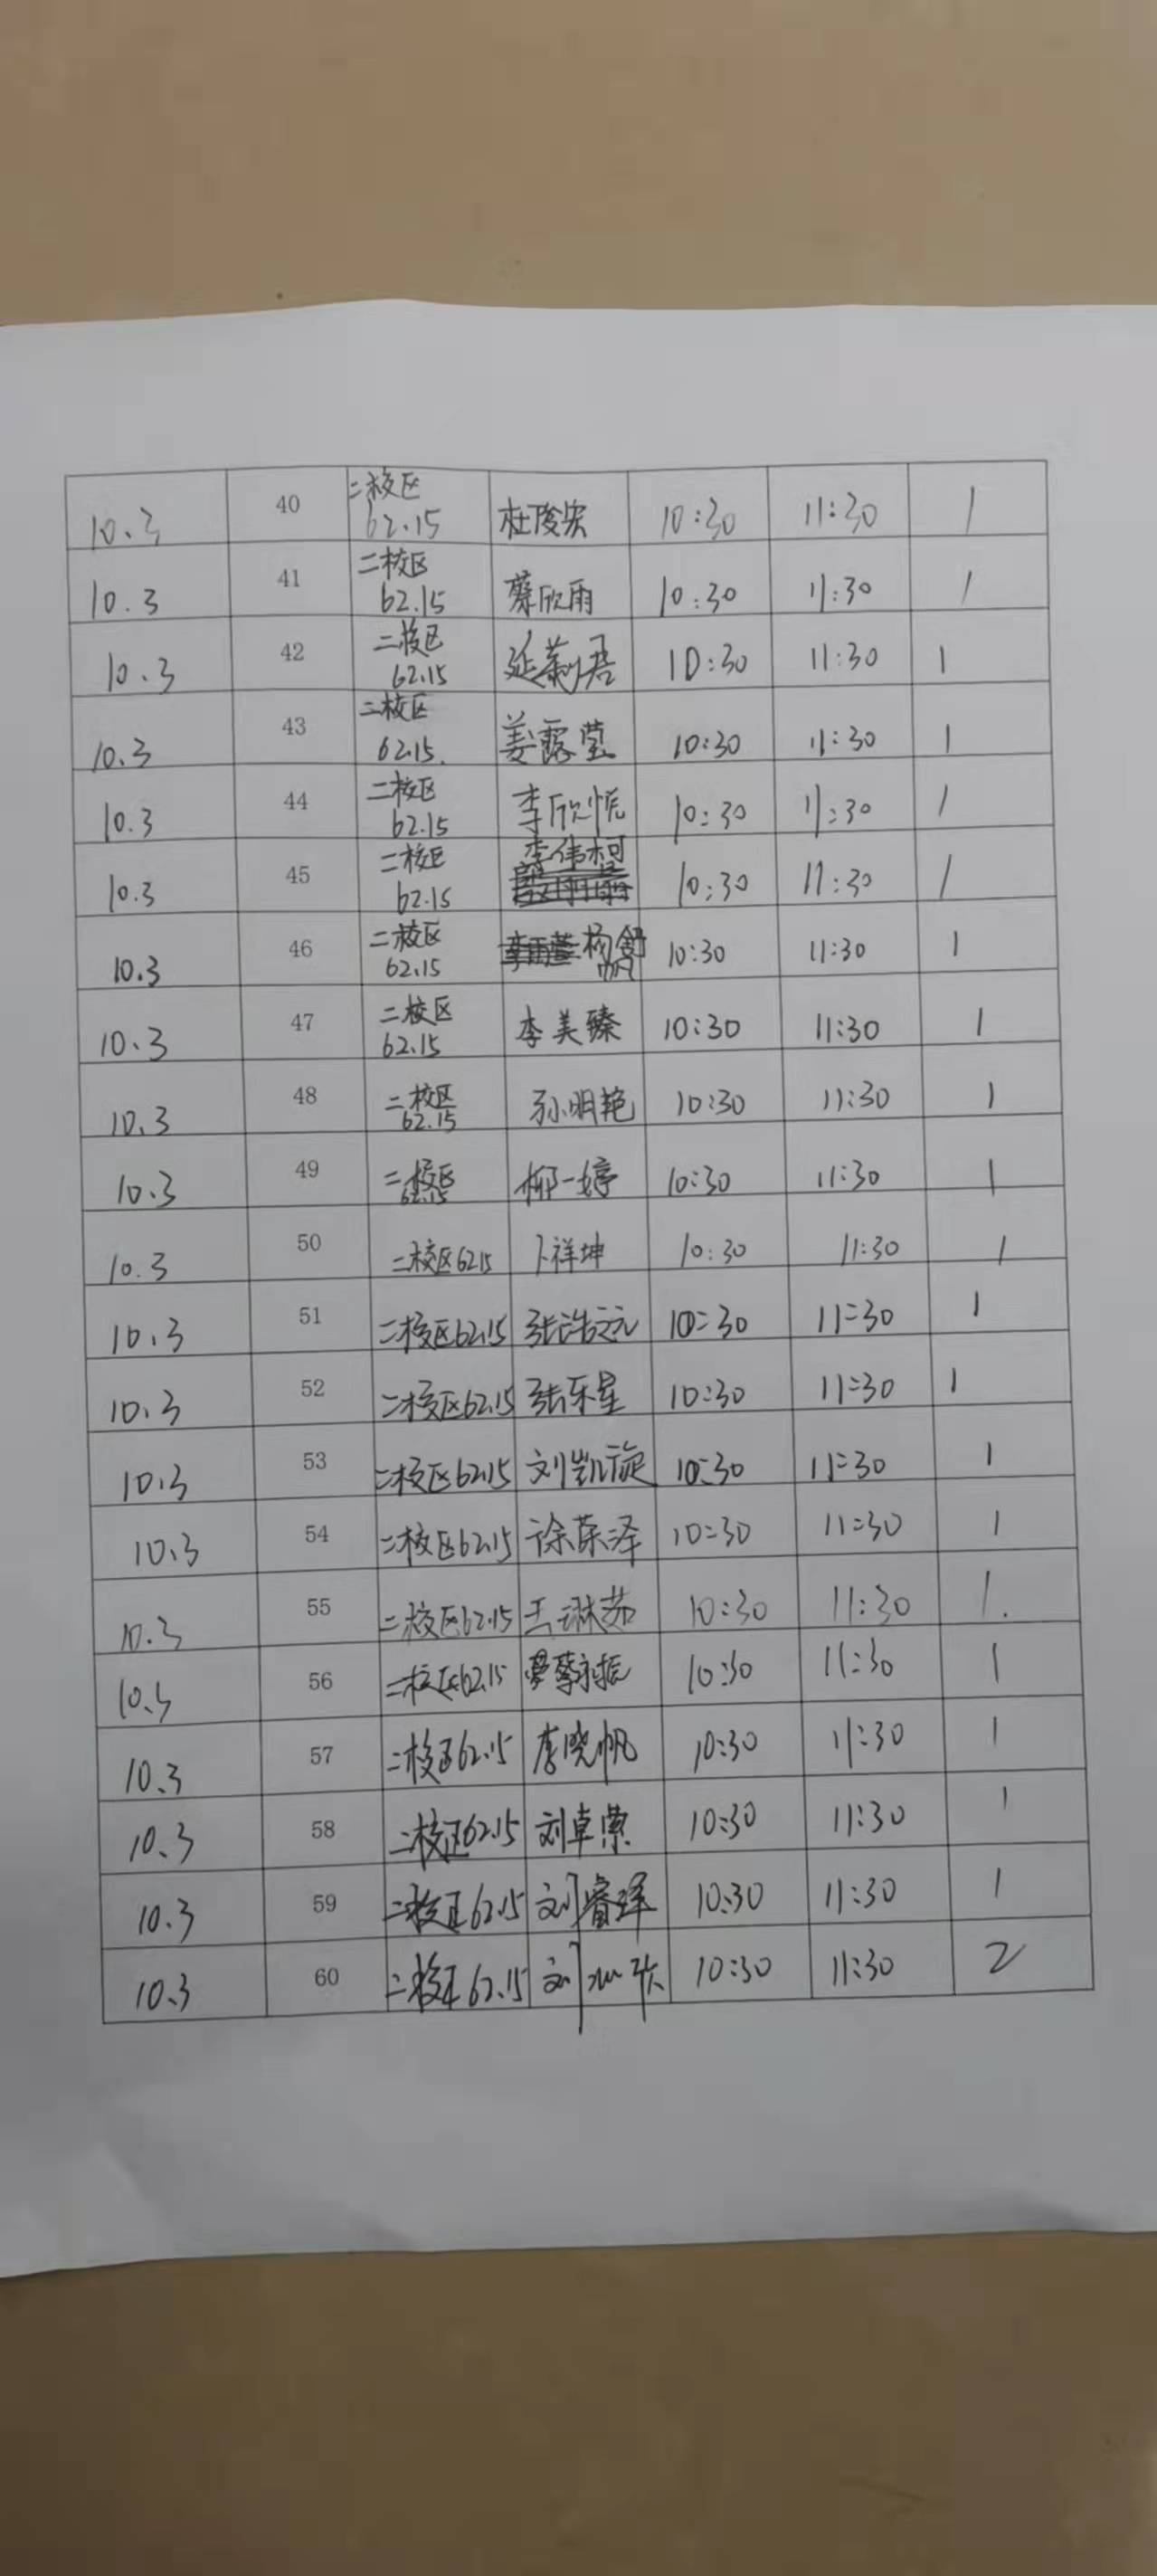 10.3 40 二校区 62.15 杜俊宏 10:30 11:30 1
10.3 41 二校区 62.15 蔡欣雨 10:30 11:30 1
10.3 42 二校区 62.15 10:30 11:30 1
10.3 43 二校区 62.15. 姜露莹 10:30 11:30 1
10.3 44 二校区 62.15 李欣悦 10:30 11:30 1
10.3 45 二校区 62.15 李伟柯 10:30 11:30 1
10.3 46 二校区 62.15 杨舒帆 10:30 11:30 1
10.3 47 二校区 62.15 李美臻 10:30 11:30 1
10.3 48 二校区 62.15 孙明艳 10:30 11:30 1
10.3 49 二校区 62.15 柳一婷 10:30 11:30 1
10.3 50 二校区 62.15 卜祥坤 10:30 11:30 1
10.3 51 二校区 62.15 张浩元 10:30 11:30 1
10.3 52 二校区 62.15 张乐星 10:30 11:30 1
10.3 53 二校区 62.15 刘凯旋 10:30 11:30 1
10.3 54 二校区 62.15 徐荣泽 10:30 11:30 1
10.3 55 二校区 62.15 王琳茹 10:30 11:30 1.
10.3 56 二校区 62.15 蔡永振 10:30 11:30 1
10.3 57 二校区 62.15 李晓帆 10:30 11:30 1
10.3 58 二校区 62.15 刘卓荣 10:30 11:30 1
10.3 59 二校区 62.15 刘睿 10:30 11:30 1
10.3 60 二校区 62.15 刘 10:30 11:30 2